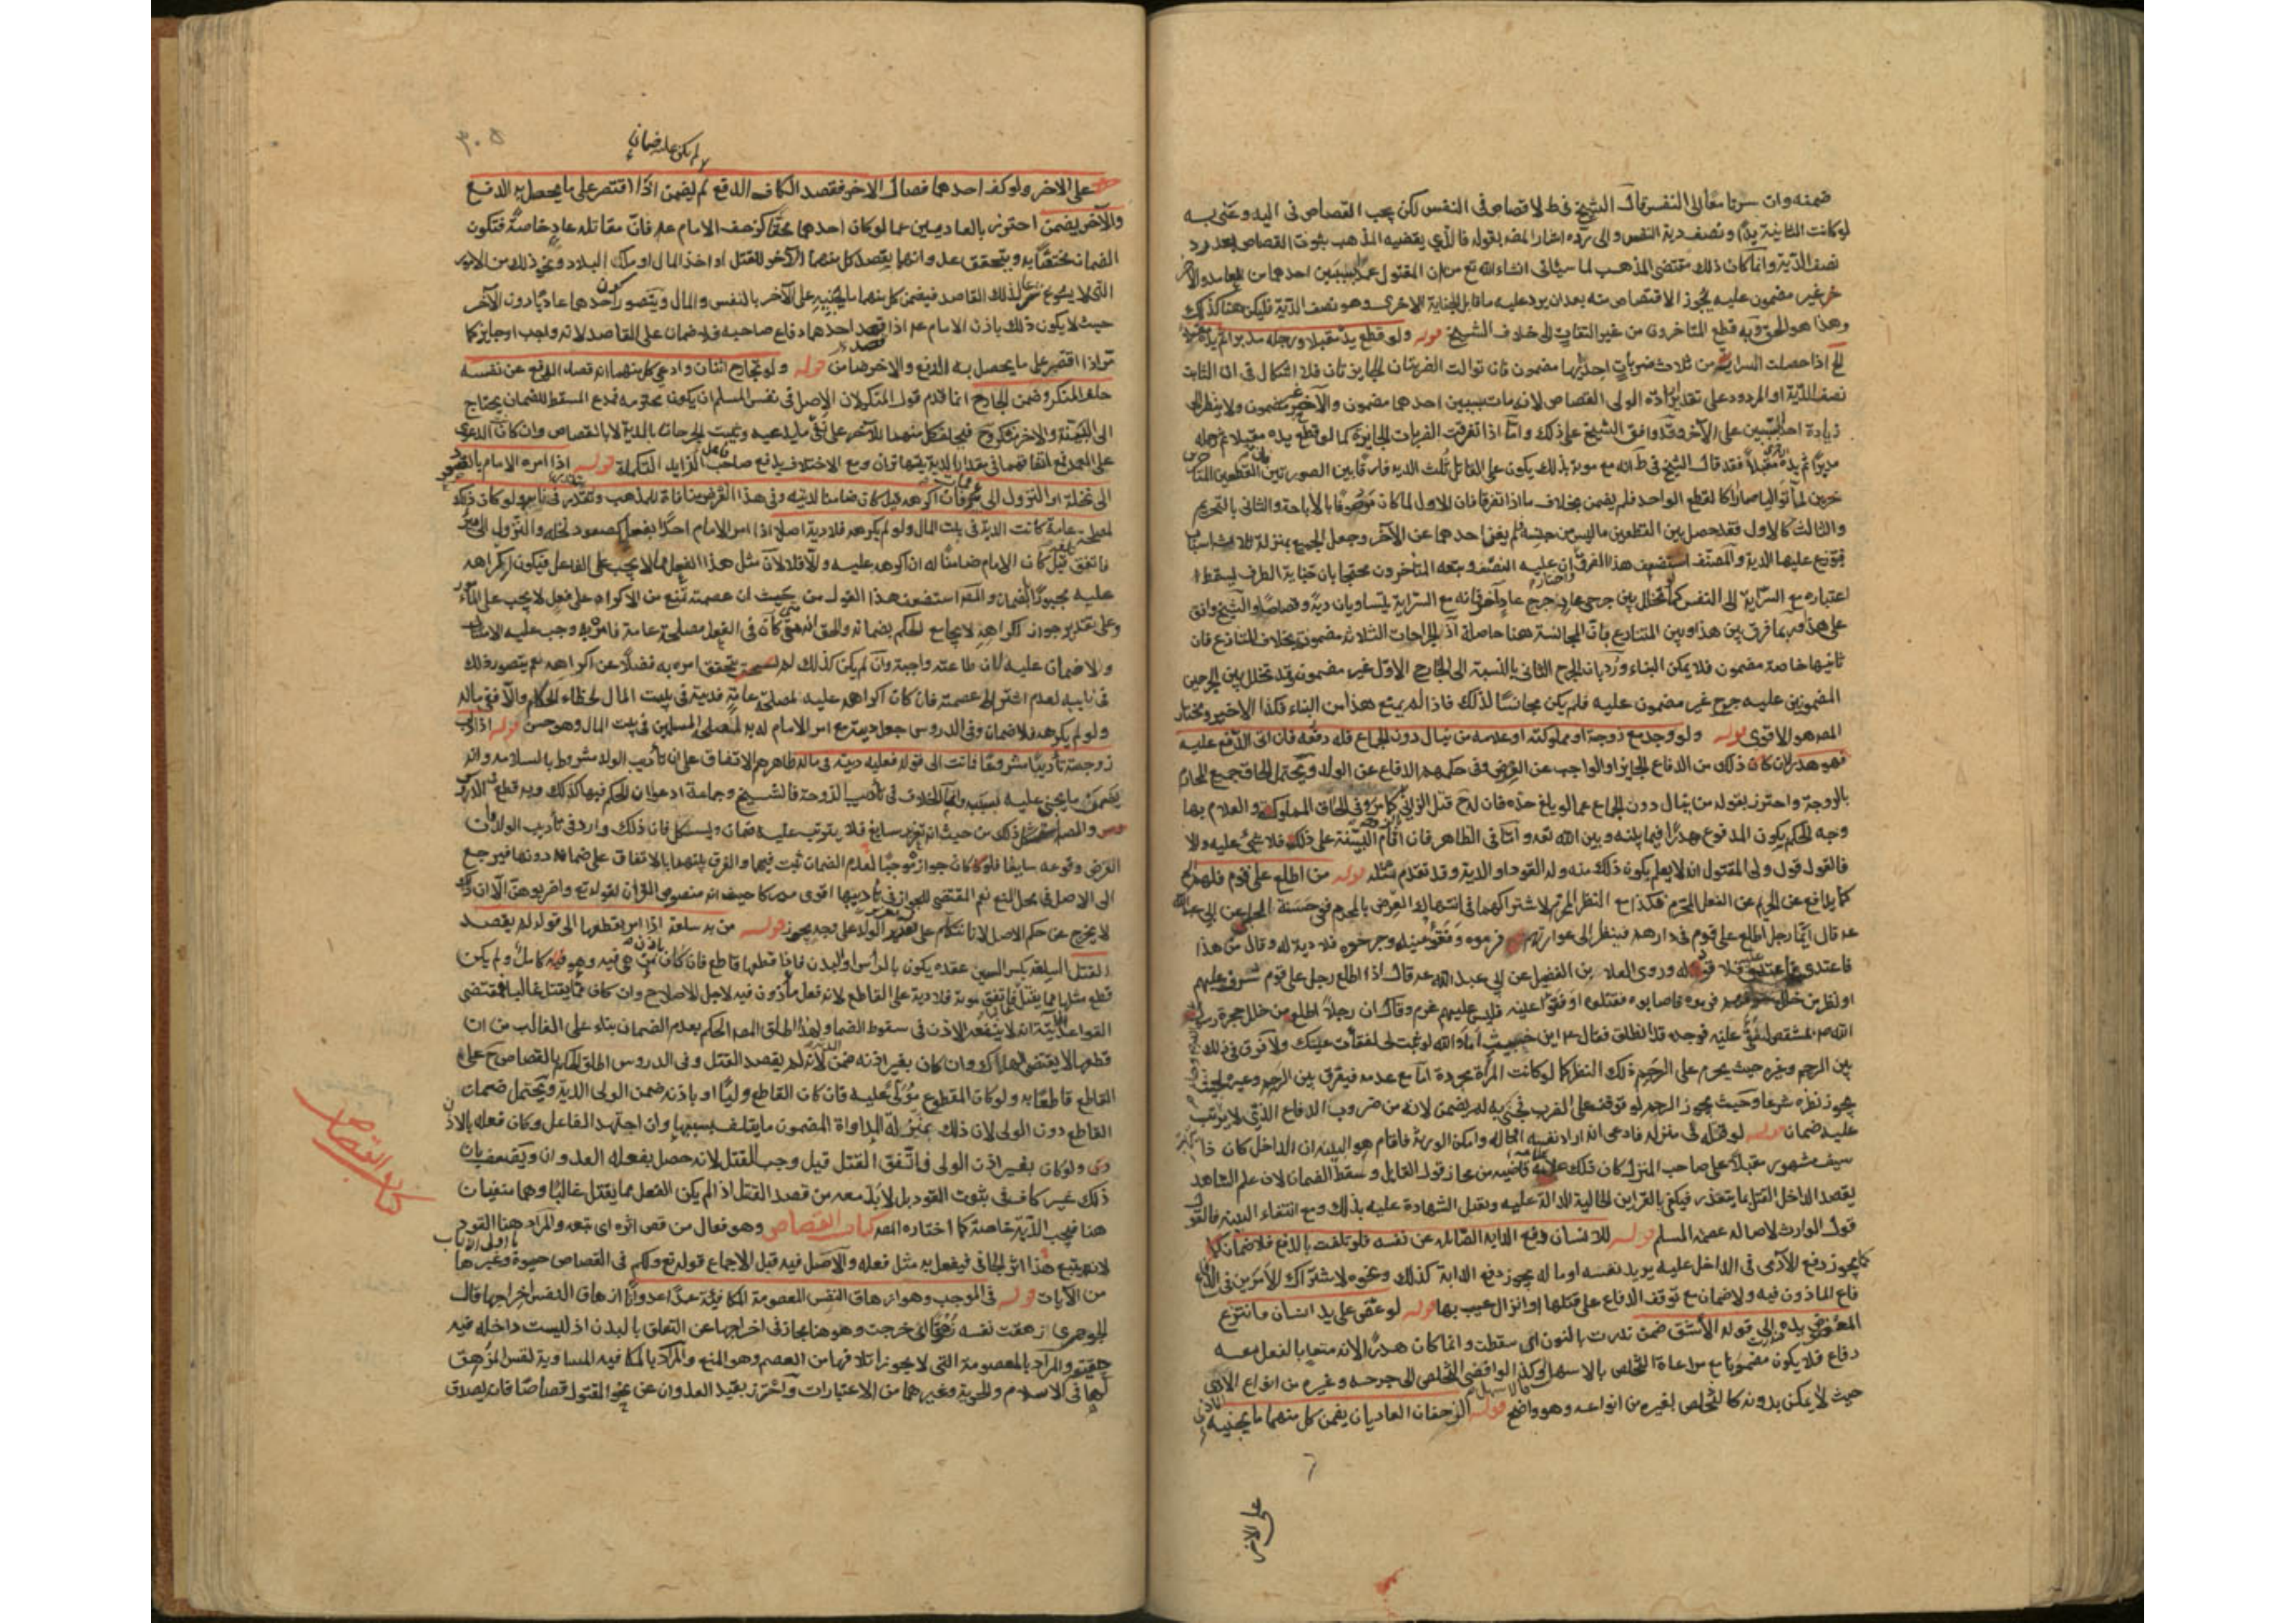 ضمنه وان سرتا معًا الى النفس قال الشيخ في ط لا قصاص في النفس لكن يجب القصاص في اليد وعنى به
لو كانت الثانية يدًا ونصف دية النفس والى رده اشار المصـ بقوله فالذي يقتضيه المذهب ثبوت القصاص بعد رد
نصف الدية وانما كان ذلك مقتضى المذهب لما سيأتي انشاء الله تع من ان المقتول عمدًا بسببين احدهما من العامد والآ
خر غير مضمون عليه يجوز الاقتصاص منه بعد ان يرد عليه ما قابل الجناية الاخرى وهو نصف الدية فليكن هنا كذلك
وهذا هو الحق وبه قطع المتاخرون من غير التفات الى خلاف الشيخ قوله ولو قطع يده مقبلا ورجله مدبرا ثم يده مقبلا
الخ اذا حصلت السراية من ثلاث ضربات احديها مضمون فان توالت الضربتان الجايزتان فلا اشكال في ان الثابت
نصف الدية او المردود على تقدير ارادة الولي القصاص لانه مات بسببين احدهما مضمون والآخر غير مضمون ولا ينظر الى
زيادة احد السببين على الآخر وقد وافق الشيخ على ذلك واما اذا تفرقت الضربات الجايزة كما لو قطع يده مقبلا ثم رجله
مدبرًا ثم يده مقبلاً فقد قال الشيخ في ط انه مع موته بذلك يكون على القاتل ثلث الديه فارقًا بين الصورتين بان القطعين المتا
خرين لما تواليا صارا كالقطع الواحد فلم يضمن بخلاف ما اذا تفرقا فان الاول لما كان موصوفًا بالاباحة والثاني بالتحريم
والثالث كالاول فقد حصل بين القطعين ما ليس من جنسه فلم يغن احدهما عن الآخر وجعل الجميع بمنزلة ثلاثة اسباب
فتوزع عليها الدية والمصنف استضعف هذا الفرق واختار ان عليه النصف وتبعه المتأخرون محتجا بان جناية الطرف يسقط
اعتباره مع السراية الى النفس كما لو تخلل بين جرحي عادٍ جرح عادٍ آخر فانه مع السراية يتساويان ديةً وقصاصًا والشيخ وافق
على هذا وربما فرق بين هذا وبين المتنازع بان المجانسة هنا حاصلة اذ الجراحات الثلاثة مضمونة بخلاف المتنازع فان
ثانيها خاصة مضمون فلا يمكن البناء ورُدّ بان الجرح الثاني بالنسبة الى الجارح الاول غير مضمون وقد تخلل بين الجرحين
المضمونين عليه جرح غير مضمون عليه فلم يكن مجانسًا لذلك فاذا لم يمنع هذا من البناء فكذا الاخير ومختار
المصـ هو الاقوى قوله ولو وجد مع زوجته او مملوكته او غلامه من ينال دون الجماع فله دفعه فان اتى الدفع عليه
فهو هدر لان كان ذلك من الدفاع الجايز او الواجب عن العرض وفي حكمهم الدفاع عن الولد ويحتمل الحاق جميع المحارم
بالزوجة واحترز بقوله من ينال دون الجماع عما لو بلغ حده فان له ح قتل الزاني كما مر وفي الحاق المملوكة والغلام بها
وجه الحكم يكون المدفوع هدرًا فيما بينه وبين الله تعه واما في الظاهر فان اقام البينة على ذلك فلا شئ عليه والا
فالقول قول ولي المقتول انه لا يعلم بكون ذلك منه وله القود او الدية وقد تقدم مثله قوله من اطلع على قوم فلهم زجره الخ
كما يدافع عن الحريم عن الفعل المحرم فكذا مع النظر المحرم لاشتراكهما في انتهاك العرض بالمحرم ففي حسنة الحلبي عن ابي عبد الله
عـ قال ايما رجل اطلع على قوم في دارهم فينظر الى عوراتهم فرموه وفقؤا عينه وجرحوه فلا دية له وقال من هذا
فاعتدي عليه فلا قود له وروى العلاء بن الفضيل عن ابي عبد الله عـ قال اذا اطلع رجل على قوم يشرف عليهم
او ينظر من خلل فرموه فاصابوه فقتلوه او فقؤا عينه فليس عليهم غرم وقال ان رجلاً اطلع من خلل حجرة رسول الله
بمشقص ليفقؤ عينه فوجده قد انطلق فقال اي خبيث اما والله لو ثبت لي لفقأت عينك ولا فرق في ذلك
بين الرحم وغيره حيث يحرم على الرحم ذلك النظر كما لو كانت المرأة مجردة اما مع عدمه فيفرق بين الرحم وغيره لحيث
يجوز نظره شرعا وحيث يجوز الرجم لو توقف على الضرب فجني به لم يضمن لانه من ضروب الدفاع الذي لا يترتب
عليه ضمان قوله لو قتله في منزله فادعى انه اراد نفسه او ماله وانكر الورثة فاقام هو البينة ان الداخل كان ذا
سيف مشهور مقبلاً على صاحب المنزل كان ذلك علامة قاضية من رجحان قول القاتل وسقط الضمان لان علم الشاهد
بقصد الداخل القتل ما يتعذر فيكفي بالقراين الحالية الدالة عليه وتقبل الشهادة عليه بذلك ومع انتفاء البينة فالقول
قول الوارث لاصالة عصمة المسلم قوله للانسان دفع الدابة الصائلة عن نفسه فلو تلفت بالدفع فلا ضمان
كما يجوز دفع الآدمي في الداخل عليه يريد نفسه او ماله يجوز دفع الدابة كذلك ونحوه لاشتراك الامرين في الد
فاع الماذون فيه ولا ضمان مع توقف الدفاع على قتلها او انزال عيب بها قوله لو عض على يد انسان فانتزع
المعضوض يده الى قوله الأشق ضمن ندرت بالنون اي سقطت وانما كان هدرًا لانه متعد بالفعل معه
دفاع فلا يكون مضمونا مع مراعاة التخلص بالاسهل وكذا لو اقتضى التخلص الى جرحه وغيره من انواع الاذى
حيث لا يمكن بدونه كالتخلص بغيره من انواعه وهو واضح قوله الزحفان العاديان يضمن كل منهما ما يجنيه
على الاخر
٣٠٥
ولم يكن عليه ضمان
على الاخر ولو كف احدهما فصال الاخر فقصد الكاف الدفع لم يضمن اذا اقتصر على ما يحصل به الدفع
والآخر يضمن احترز بالعاديين عما لو كان احدهما محقًا كزحف الامام عـ فان مقاتله عادٍ خاصةً فتكون
الضمان مختصًا به ويتحقق عدوانهما بقصد كل منهما الآخر للقتل او اخذ المال او ملك البلاد ونحو ذلك من الامور
التي لا يسوغ شرعا لذلك القاصد فيضمن كل منهما ما يجنيه على الآخر بالنفس والمال ويتصور كون احدهما عاديًا دون الآخر
حيث لا يكون ذلك باذن الامام عـ اذا قصد احدهما دفاع صاحبه فلا ضمان على القاصد لانه واجب او جايز كما
مر اذا اقتصر على ما يحصل به الدفع والآخر ضامن قوله ولو تجارح اثنان وادعى كل منهما انه قصد الدفع عن نفسه
حلف المنكر وضمن الجارح انما قدم قول المنكر لان الاصل في نفس المسلم ان يكون محترمه فمدعي المسقط للضمان يحتاج
الى البينة والاخر منكر ح فيحلف كل منهما للآخر على نفي ما يدعيه وتثبت الجرحات بالدية لا بالقصاص وان كان الدعوى
على العمد مع اتفاقهما في مقدار الدية يتهاتران ومع الاختلاف يدفع صاحب الزايد التكملة قوله اذا امره الامام بالصعود
الى نخلة او النزول الى بئر فمات فان اكرهه قيل كان ضامنا لديته وفي هذا الفرض منافاة للمذهب ويتقدر في نايبه ولو كان ذلك
لمصلحة عامة كانت الدية في بيت المال ولو لم يكرهه فلا دية اصلا اذا امر الامام احدًا بفعل كصعود نخلة والنزول الى بئر
فاتفق تلفه قيل كان الامام ضامنًا له ان اكرهه عليه والا فلا لان مثل هذا الفعل مما لا يجب على الفاعل فيكون اكراهه
عليه مجبورًا بالضمان والمصـ استضعف هذا القول من حيث ان عصمته تمنع من الاكراه على فعل لا يجب على المأمور
وعلى تقدير جواز اكراهه لا يجامع الحكم بضمانه والحق انه متى كان في الفعل مصلحة عامة فامر به وجب عليه الامتثال
ولا ضمان عليه لان طاعته واجبة وان لم يكن كذلك لم يتحقق امره به فضلاً عن اكراهه نعم يتصور ذلك
في نايبه لعدم اشتراط عصمته فان كان اكراهه عليه لمصلحة عامة فديته في بيت المال لخطاء الحكام والا ففي ماله
ولو لم يكرهه فلا ضمان وفي الدروس جعل ديته مع امر الامام له به لمصلحة المسلمين في بيت المال وهو حسن قوله اذا ادب
زوجته تأديبًا مشروعًا فماتت الى قوله فعليه ديته في ماله ظاهرهم الاتفاق على ان تأديب الولد مشروط بالسلامه وانه
يضمن ما يجني عليه بسببه وانما الخلاف في تأديب الزوجة فالشيخ وجماعة ادعوا ان الحكم فيها كذلك وبه قطع في الدرو
س والمصـ ذلك من حيث انه تعزير سايغ فلا يترتب عليه ضمان ويشكل فان ذلك وارد في تأديب الولد لان
الفرض وقوعه سايغا فلو كان جوازه موجبًا لعدم الضمان ثبت فيهما والفرق بينهما بالاتفاق على ضمانه دونها فيرجع
الى الاصل في محل المنع نعم المقتضي للجواز في تأديبها اقوى مدركا حيث انه منصوص القرآن لقوله تع واضربوهن الا ان ذلك
لا يخرج عن حكم الاصل لانا نتكلم على تقدير الولد على وجه يجوز قوله من به سلعة اذا امر بقطعها الى قوله لم يقصد
القتل السلعة بكسر السين عقدة يكون بالرأس او البدن فاذا قطعها قاطع فان كان باذن من هي فيه وهو كاملٌ ولم يكن
قطع مثلها مما يقتل فاتفق موته فلا دية على القاطع لانه فعل مأذون فيه لاجل الاصلاح وان كان مما يقتل غالبا فمقتضى
القواعد الآتية انه لا ينفعه الاذن في سقوط الضمان ولعله اطلق المصـ الحكم بعدم الضمان بناء على الغالب من ان
قطعها لا يقتضي الهلاك وان كان بغير اذنه ضمن الدية لانه لم يقصد القتل وفي الدروس اطلق الحكم بالقصاص ح على
القاطع قاطعًا به ولو كان المقطوع مُوَلّىً عليه فان كان القاطع وليًا او باذنه ضمن الولي الدية ويحتمل ضمان
القاطع دون الولي لان ذلك بمنزلة المداواة المضمون ما يتلف بسببها وان اجتهد الفاعل وكان فعله بالاذن
ولو كان بغير اذن الولي فاتفق القتل قيل وجب القتل لانه حصل بفعله العدوان ويضعف بان
ذلك غير كاف في ثبوت القود بل لا بد معه من قصد القتل اذا لم يكن الفعل مما يقتل غالبًا وهما منفيان
هنا فيجب الدية خاصة كما اختاره المصـ كتاب القصاص وهو فعال من قص اثره اي تبعه والمراد هنا القود
لانه يتبع هذا اثر الجاني فيفعل به مثل فعله والاصل فيه قبل الاجماع قوله تع ولكم في القصاص حيوة يا اولي الالباب وغيرها
من الآيات قوله في الموجب وهو ازهاق النفس المعصومة المكافية عمدًا عدوانًا ازهاق النفس اخراجها قال
الجوهري زهقت نفسه زهوقًا اي خرجت وهو هنا مجاز في اخراجها عن التعلق بالبدن اذ ليست داخلة فيه
حقيقة والمراد بالمعصومة التي لا يجوز اتلافها من العصم وهو المنع والمراد بالمكافيه المساوية لنفس المزهق
لها في الاسلام والحرية وغيرهما من الاعتبارات واحترز بقيد العدوان عن نحو المقتول قصاصًا فانه يصدق
كتاب القصاص